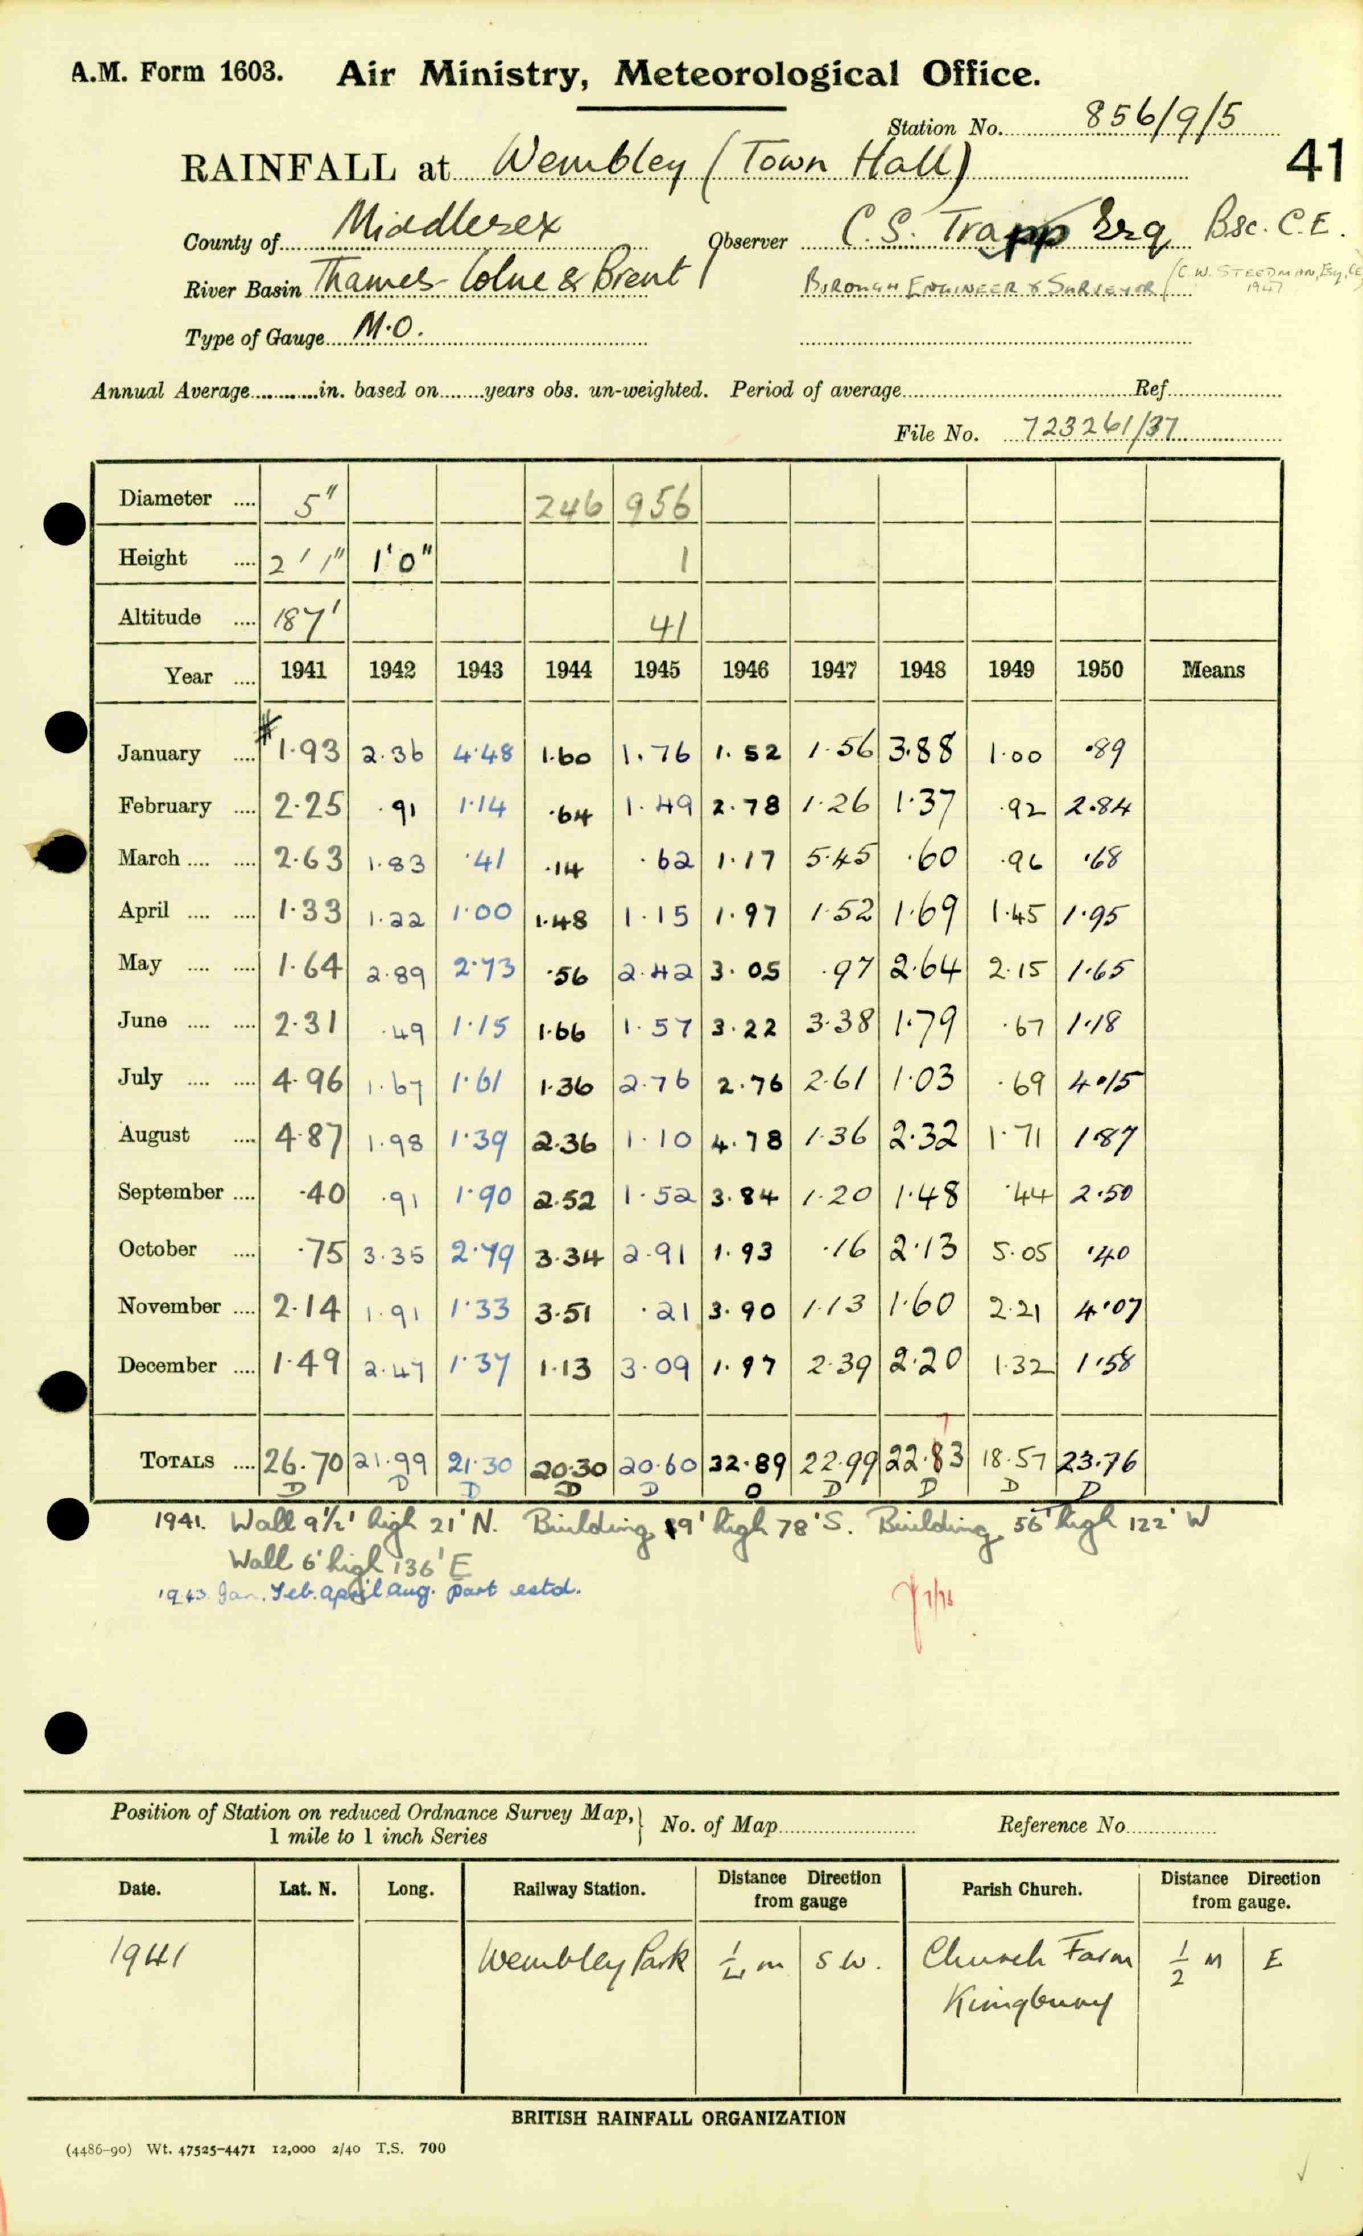 A.M. Form 1603. Air Ministry, Meteorological Office.
Station No. 856/9/5
41
RAINFALL at Wembley (Town Hall)
County of Middlesex Observer C. S. Trapp Esq Bsc. C.E.
River Basin Thames-Colne & Brent BOROUGH ENGINEER & SURVEYOR (C.W. STEEDMAN, Esq, CE
1947
Type of Gauge M.O.
Annual Average in. based on years obs. un-weighted. Period of average Ref
File No. 723261/37
Diameter 5" 246 956
Height 2'1" 1'0" 1
Altitude 187' 41
Year 1941 1942 1943 1944 1945 1946 1947 1948 1949 1950 Means
January #1.93 2.36 4.48 1.60 1.76 1.52 1.56 3.88 1.00 .89
February 2.25 .91 1.14 .64 1.49 2.78 1.26 1.37 .92 2.84
March 2.63 1.83 .41 .14 .62 1.17 5.45 .60 .96 .68
April 1.33 1.22 1.00 1.48 1.15 1.97 1.52 1.69 1.45 1.95
May 1.64 2.89 2.73 .56 2.42 3.05 .97 2.64 2.15 1.65
June 2.31 .49 1.15 1.66 1.57 3.22 3.38 1.79 .67 1.18
July 4.96 1.67 1.61 1.36 2.76 2.76 2.61 1.03 .69 4.15
August 4.87 1.98 1.39 2.36 1.10 4.78 1.36 2.32 1.71 1.87
September .40 .91 1.90 2.52 1.52 3.84 1.20 1.48 .44 2.50
October .75 3.35 2.79 3.34 2.91 1.93 .16 2.13 5.05 .40
November 2.14 1.91 1.33 3.51 .21 3.90 1.13 1.60 2.21 4.07
December 1.49 2.47 1.37 1.13 3.09 1.97 2.39 2.20 1.32 1.58
TOTALS 26.70 21.99 21.30 20.30 20.60 32.89 22.99 22.83 18.57 23.76
D D D D D D D D D D
1941. Wall 9½' high 21' N. Building 19' high 78' S. Building 56' high 122' W
Wall 6' high 136' E
1943 Jan. Feb. April Aug. part estd.
Position of Station on reduced Ordnance Survey Map, 1 mile to 1 inch Series No. of Map Reference No.
Date. Lat. N. Long. Railway Station. Distance Direction from gauge Parish Church. Distance Direction from gauge.
1941 Wembley Park ¼ m S W. Church Farm ½ M E
Kingbury
BRITISH RAINFALL ORGANIZATION
(4486-90) Wt. 47525-4471 12,000 2/40 T.S. 700